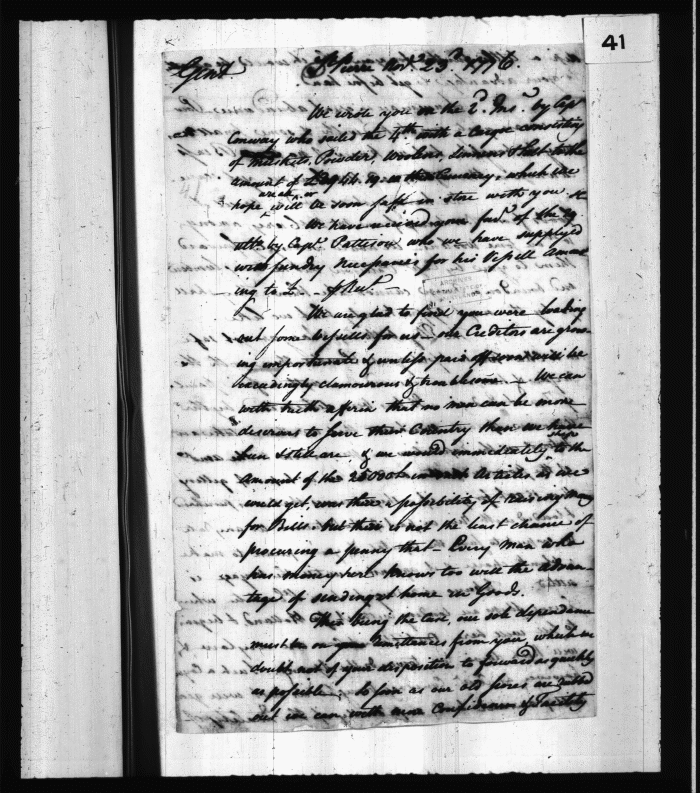 41
Gent
St Pierre Novr. 23d. 1776.
We wrote you on the 2d. Inst. by Capt
Conway who sailed the 4th with a Cargo consisting
of Muskets, Powder, Woolens, Linnens &
amount of this Currency, which we
hope will be soon safe in store with you
We have received your favr. of the 19
Ulto. by Capt. Pattison who we have supplyed
with sundry Necessaries for his Vessell Amount
ing to £
We are glad to find you were loading
out some Vessells for us — our Creditors are grow
ing importunate & unless paid off soon will be
exceedingly clamourous & troublesome — We can
with truth assert that no men can be more
desirous to serve their Country than we have
been & still are & we would immediately ship to the
amount of the Articles as we
could get, was there a possibility of raising Money
for Bills, but there is not the least chance of
procuring a penny that — Every Man who
has money here knows too well the advan
tage of sending it home in Goods.
This being the case, our sole dependance
must be on your Remittances from you, which we
doubt not of your disposition to forward as quickly
as possible, So soon as our old scores are
out we can with more Confidence &